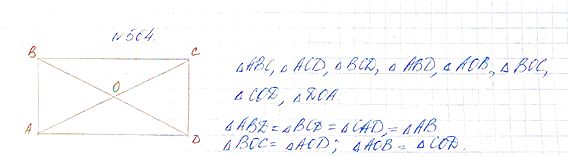 №564.
B C
O
A D
△ABC, △ACD, △BCD, △ABD, △AOB, △BOC,
△COD, △DOA
△ABD = △BCD = △CAD, = △AB
△BOC = △AOD; △AOB = △COD.